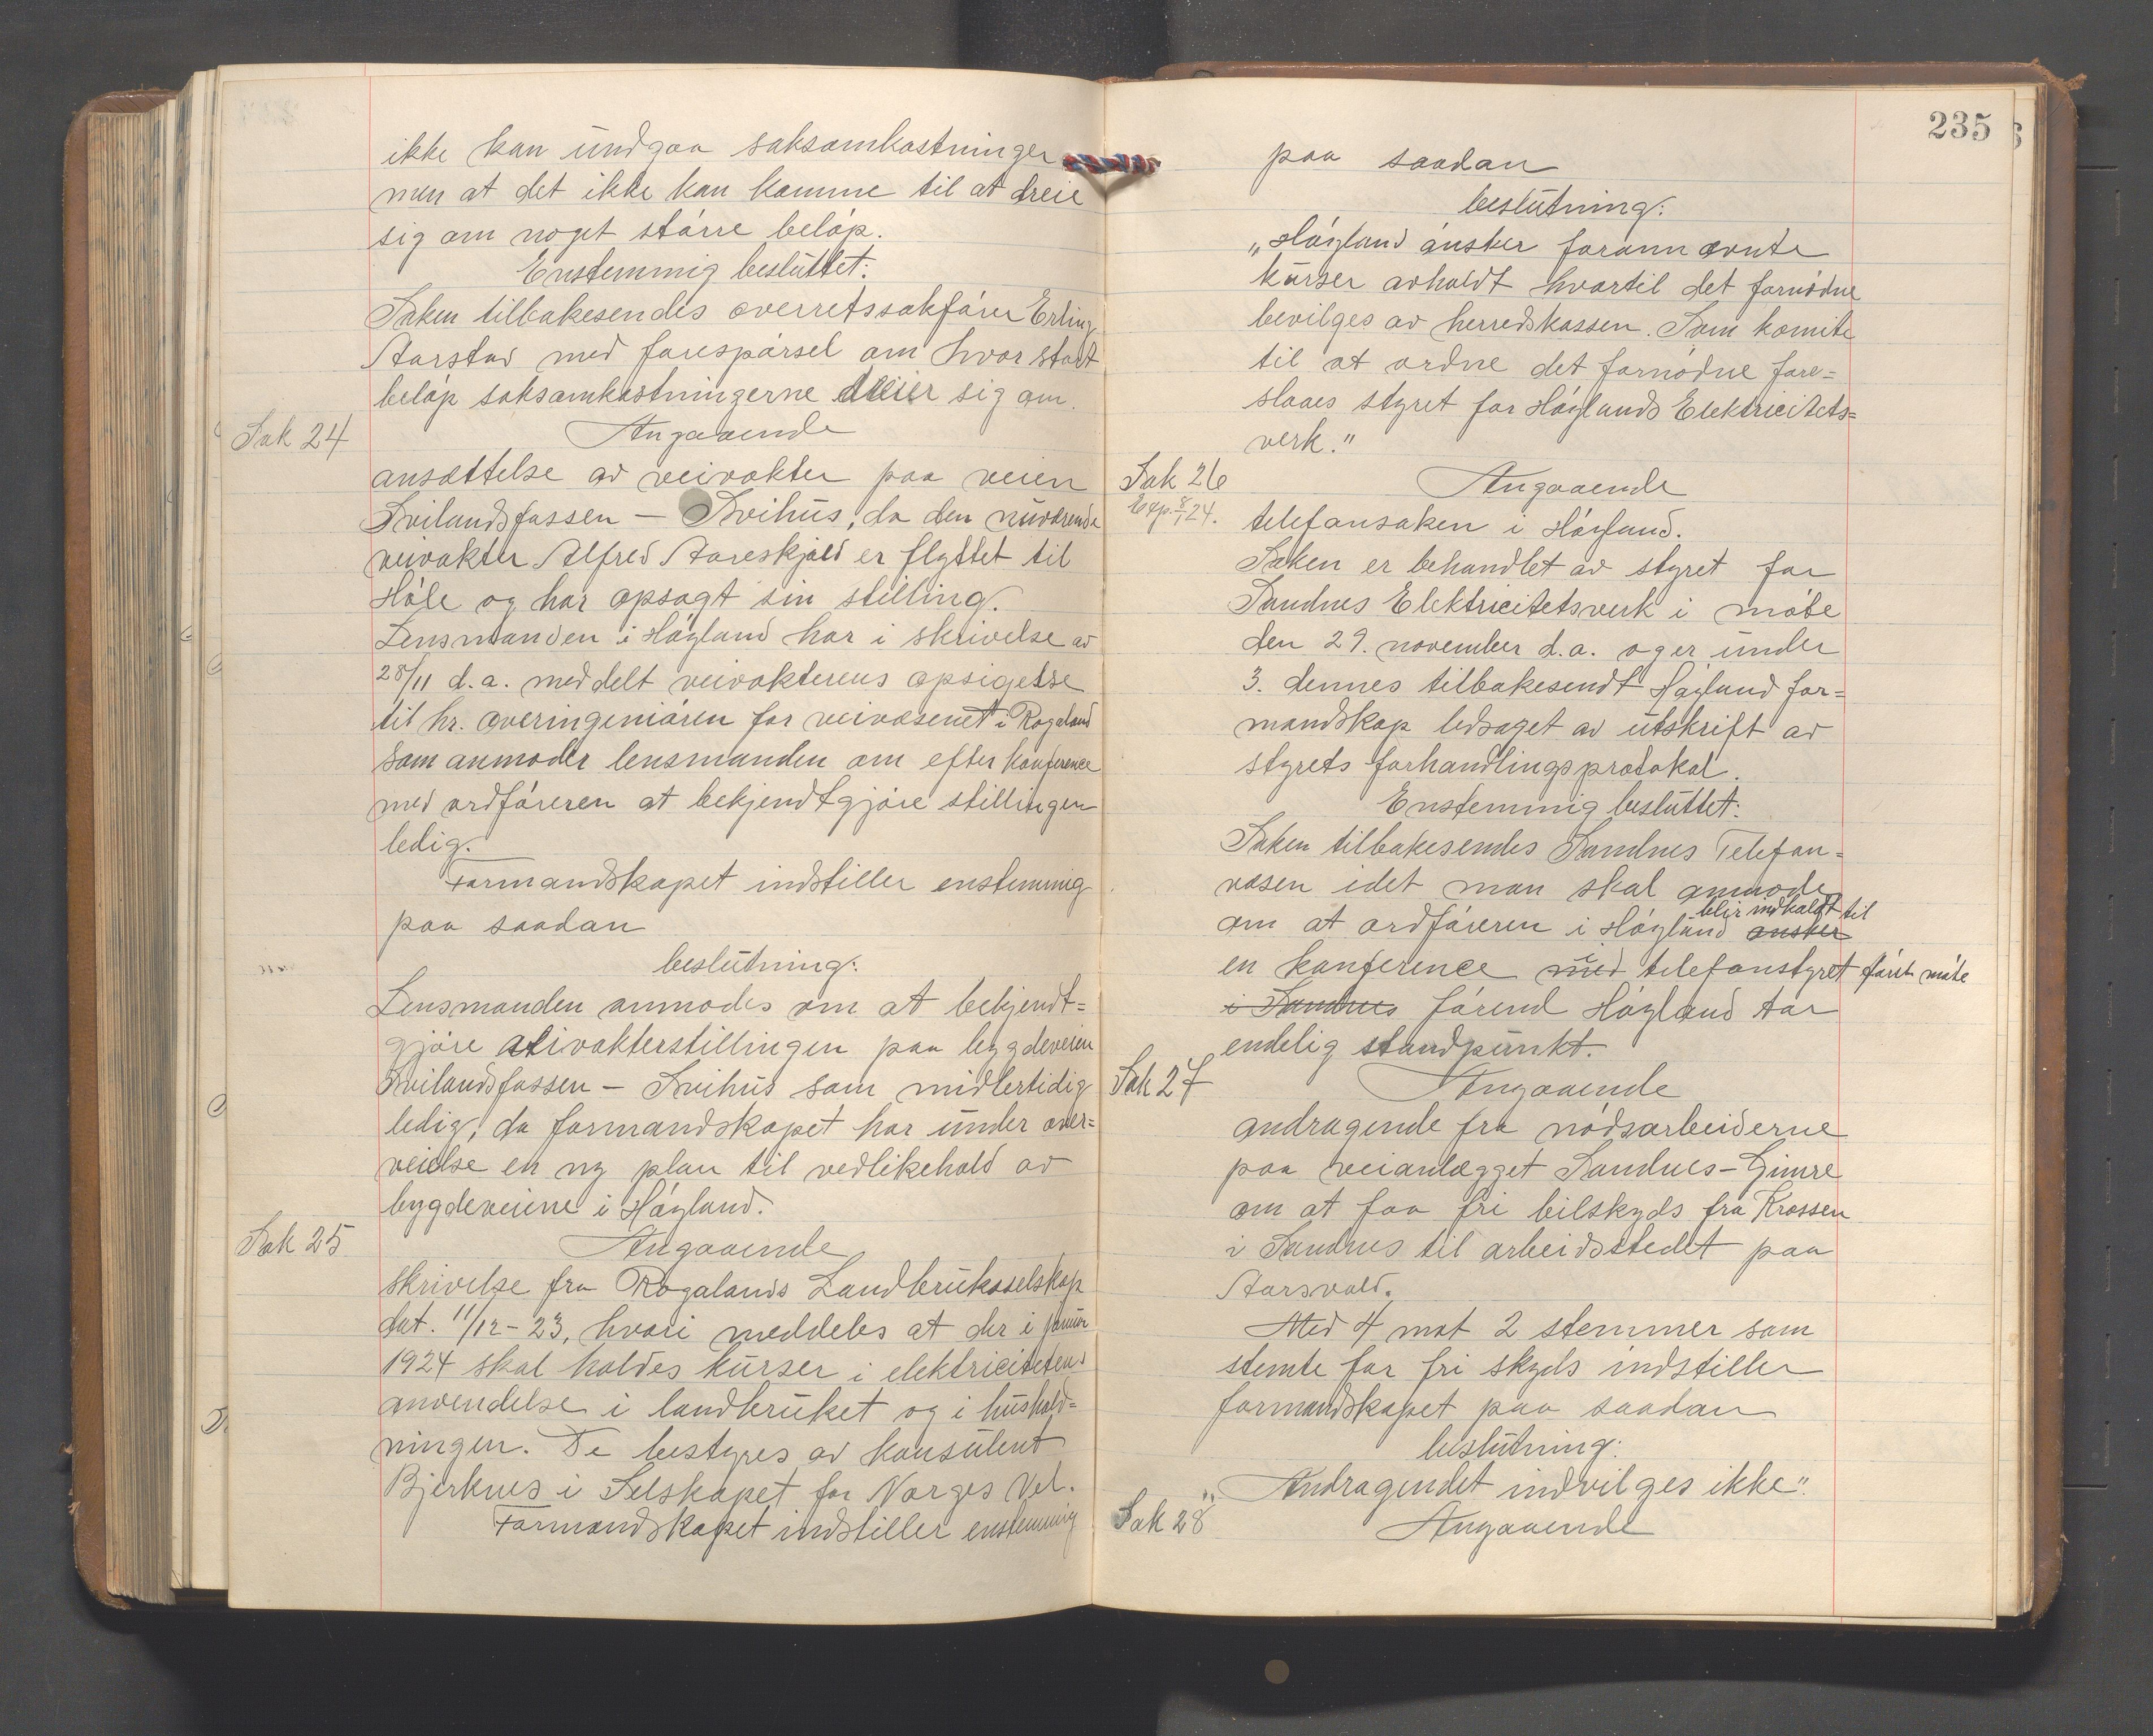 ikke kan undgaa saksomkostninger
men at det ikke kan komme til at dreie
sig om noget større beløp.
Enstemmig besluttet:
Saken tilbakesendes overretssakfører Erling
Aarstad med forespørsel om hvor stort
beløp saksomkostningerne dreier sig om.
Sak 24 Angaaende
ansættelse av veivokter paa veien
Svilandsfossen – Svihus, da den nuværende
veivokter Alfred Aareskjold er flyttet til
Høle og har opsagt sin stilling.
Lensmanden i Høyland har i skrivelse av
28/11 d.a. meddelt veivokterens opsigelse
til hr. overingeniøren for veivæsenet i Rogaland
som anmoder lensmanden om efter konference
med ordføreren at bekjendtgjøre stillingen
ledig.
Formandskapet indstiller enstemmig
paa saadan
beslutning:
Lensmanden anmodes om at bekjendt=
gjøre veivokterstillingen paa bygdeveien
Svilandsfossen – Svihus som midlertidig
ledig, da formandskapet har under over=
veielse en ny plan til vedlikehold av
bygdeveiene i Høyland.
Sak 25 Angaaende
skrivelse fra Rogalands Landbruksselskap
dat. 11/12-23, hvori meddeles at der i januar
1924 skal holdes kurser i elektricitetens
anvendelse i landbruket og i hushold=
ningen. De bestyres av konsulent
Bjerknes i Selskapet for Norges Vel.
Formandskapet indstiller enstemmig
235
paa saadan
beslutning:
"Høyland ønsker forannævnte
kurser avholdt hvortil det fornødne
bevilges av herredskassen. Som komite
til at ordne det fornødne fore=
slaaes styret for Høylands Elektricitets=
verk."
Sak 26 Angaaende
Exp. 8/1 24.
telefonsaken i Høyland.
Saken er behandlet av styret for
Sandnes Elektricitetsverk i møte
den 29. november d.a. og er under
3. dennes tilbakesendt Høyland for=
mandskap ledsaget av utskrift av
styrets forhandlingsprotokol.
Enstemmig besluttet:
Saken tilbakesendes Sandnes Telefon=
væsen idet man skal anmode
blir indkaldt til
om at ordføreren i Høyland ønsker
en konference med i telefonstyret første møte
i Sandnes førend Høyland tar
endelig standpunkt.
Sak 27 Angaaende
andragende fra nødsarbeiderne
paa veianlægget Sandnes – Gimre
om at faa fri bilskyds fra Krossen
i Sandnes til arbeidsstedet paa
Aarsvold.
Med 4 mot 2 stemmer som
stemte for fri skyds indstiller
formandskapet paa saadan
beslutning:
"Andragendet indvilges ikke".
Sak 28 Angaaende